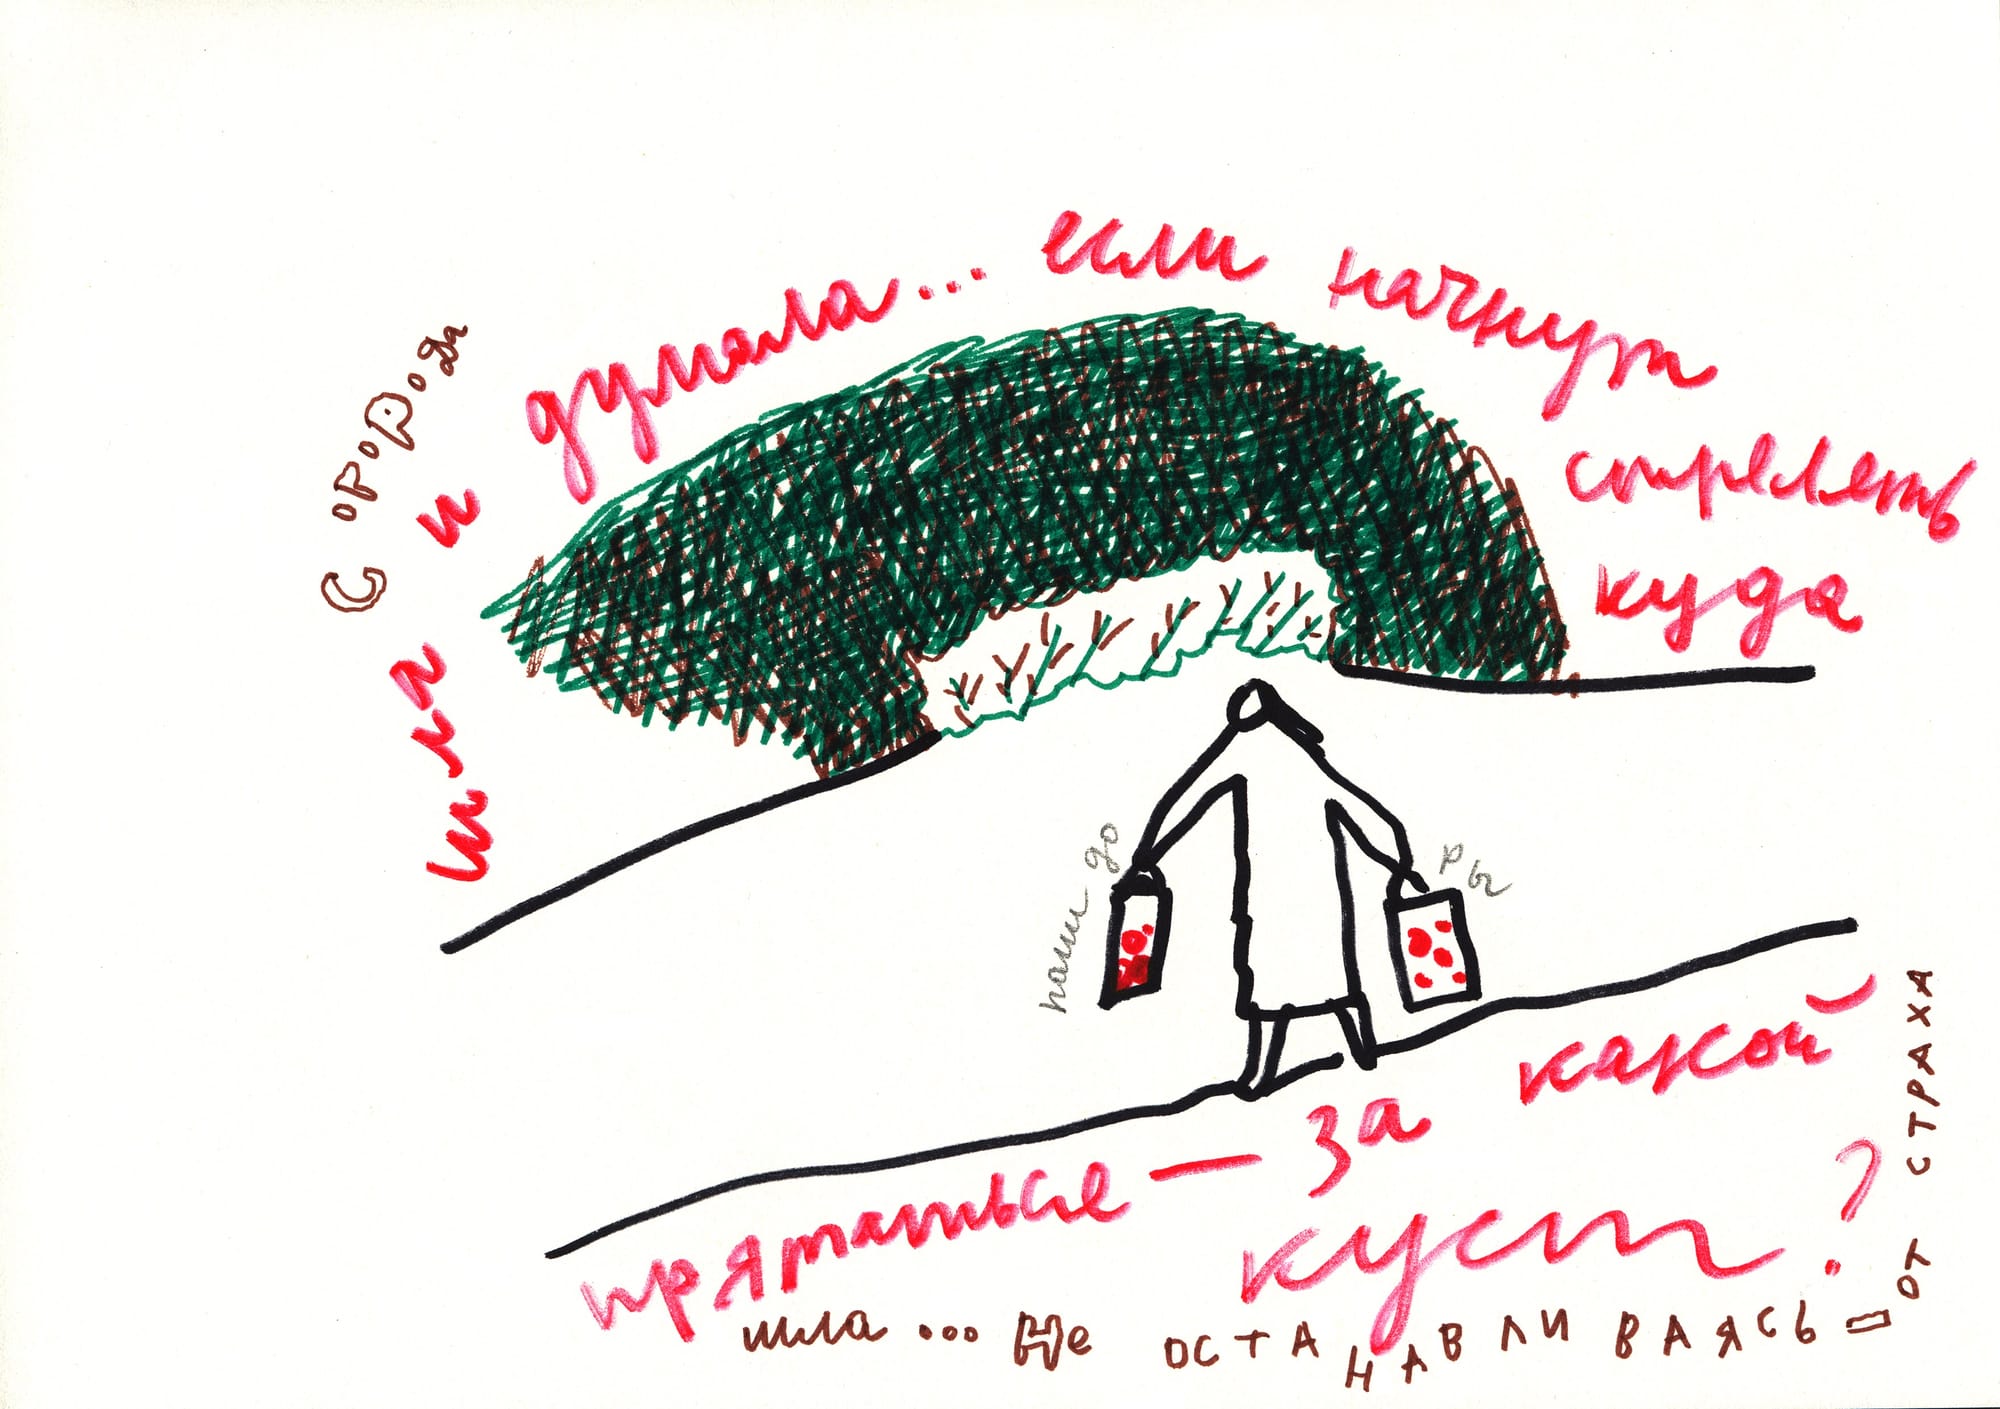 С огорода
шла и думала... если начнут
стрелять
куда
прятаться — за какой
куст?
наши до
ры
шла ... не останавливаясь — от страха